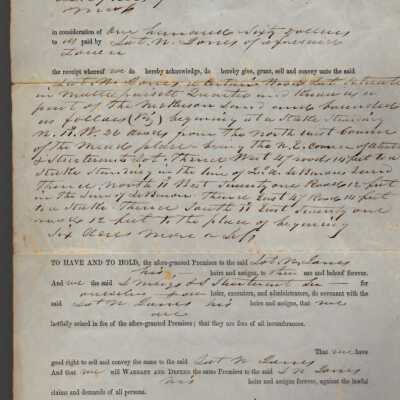 in consideration of One hundred Sixty Dollars
to us paid by Lot N. Jones of aforesaid
the receipt whereof we do hereby acknowledge, do hereby give, grant, sell and convey unto the said
Lot N. Jones a Certain Wood Lot Situate
in and known as a
part of the Land and bounded
as follows (Viz) beginning at a Stake Standing
N. 12 W. 26 Rods from the North east Corner
of the place being the N. E. corner of
Lot. Thence West 47 rods 14 feet to a
Stake Standing in the line of Land
Thence North 11 West Seventy one Rods 12 feet
in the line of Thence East 47 Rods 14 feet
to a Stake Thence South 11 East Seventy one
rods 12 feet to the place of beginning
Six Acres more or less
TO HAVE AND TO HOLD, the afore-granted Premises to the said Lot N. Jones
his heirs and assigns, to their use and behoof forever.
And we the said for
ourselves & our heirs, executors, and administrators, do covenant with the
said Lot N. Jones his heirs and assigns, that we
are
lawfully seized in fee of the afore-granted Premises; that they are free of all incumbrances.
That we have
good right to sell and convey the same to the said Lot N. Jones
And that we will WARRANT AND DEFEND the same Premises to the said L N Jones
his heirs and assigns forever, against the lawful
claims and demands of all persons.